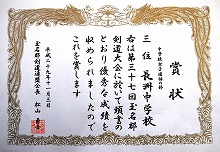 賞状
中学校女子団体の部
三位 長洲中学校
右は第三十七回玉名郡
剣道大会に於いて頭書の
とおり優秀な成績を
収められましたので
これを賞します
平成二十九年十一月三日
玉名郡剣道連盟会長 松山